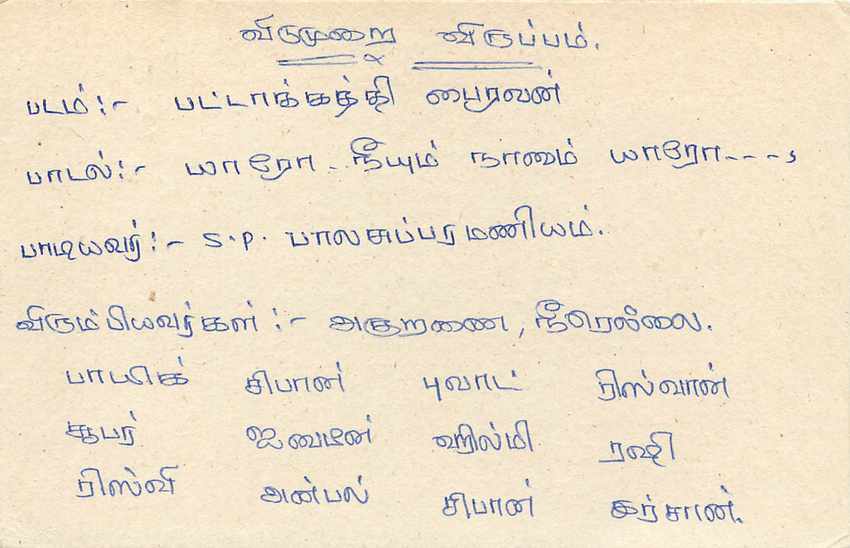 விடுமுறை விருப்பம்.
படம்:- பட்டாக்கத்தி பைரவன்
பாடல்:- யாரோ.. நீயும் நானும் யாரோ----,
பாடியவர்:- S.P. பாலசுப்பரமணியம்.
விரும்பியவர்கள்:- அகுறணை, நீரெல்லை.
பாயிக் சிபான் புவாட் ரிஸ்வான்
சூபர் ஹில்மி ரஷி
ரிஸ்வி அன்பல் சிபான் இர்சான்.